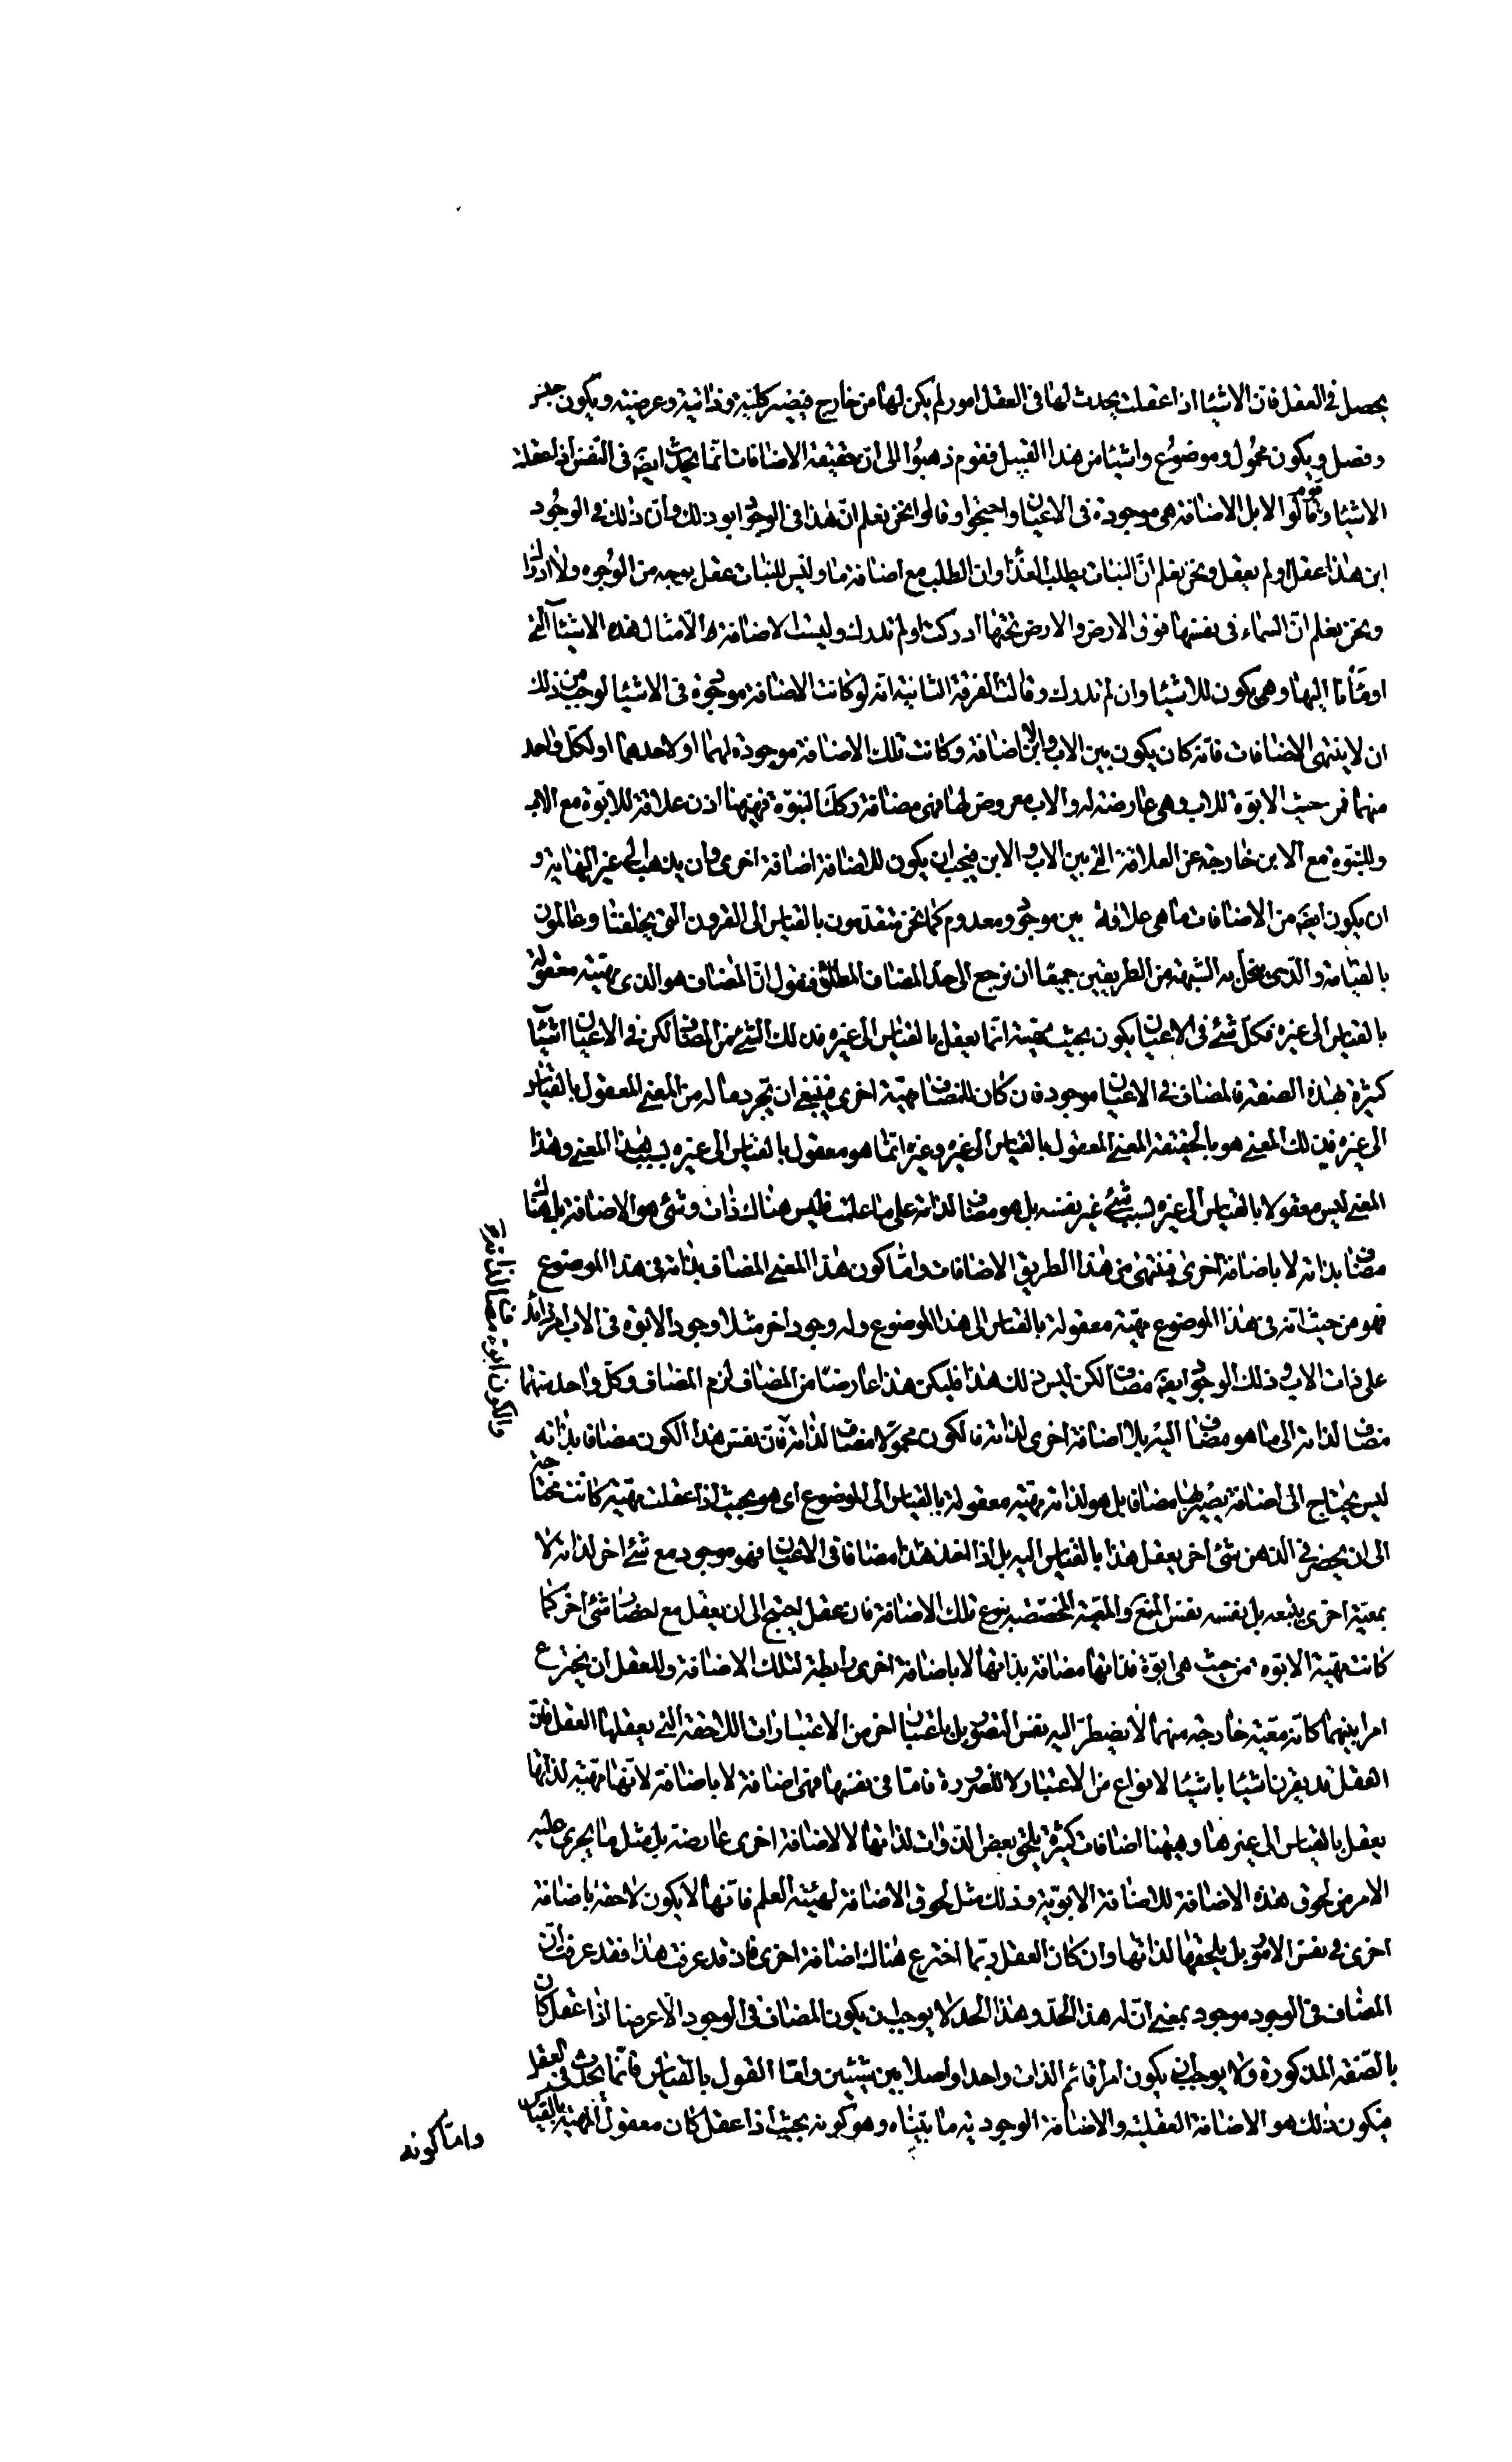 يحصل فى العقل فان الاشيا اذا عقلت يحدث لها فى العقل امور لم يكن لها من خارج فيضير كلية وذاتية وعرضية ويكون جنس
وفصل ويكون محمول وموضوع واشيا من هذا القبيل فقوم ذهبوا الى ان حقيقة الاضافات انما يحدث ايضا فى النفس اذا عقلت
الاشيا وقوم قالوا لا بل الاضافة هى موجودة فى الاعيان واحتجوا وقالوا نحن نعلم ان هذا فى الوجود ابو ذلك وان ذلك فى الوجود
ابن هذا عقل او لم يعقل ونحن نعلم ان النبات يطلب الغذا وان الطلب مع اضافة ما وليس للنبات عقل بوجه من الوجوه ولا ادراك
ونحن نعلم ان السماء فى نفسها فوق الارض والارض تحتها ادركت او لم تدرك وليست الاضافة الا امثال هذه الاشيآ التى
اومأنا اليها وهى يكون للاشيا وان لم تدرك وقالت الفرقة الثانية انه لو كانت الاضافة موجودة فى الاشيا لوجب من ذلك
ان لا ينتهى الاضافات فانه كان يكون بين الاب والابن اضافة وكانت تلك الاضافة موجودة لهما او لاحدهما او لكل واحد
منهما فمن حيث الابوة للاب وهى عارضة له والاب معروض لها فهى مضافة وكك البنوة فههنا اذن علاقة للابوة مع الاب
وللبنوة مع الابن خارجة عن العلاقة التى بين الاب والابن فيجب ان يكون للاضافة اضافة اخرى وان يذهب الى غير النهاية و
ان يكون ايضا من الاضافات ما هى علاقة بين موجود ومعدوم كما نحن متقدمون بالقياس الى القرون التى يخلفنا وعالمون
بالقيامة والذى ينحل به الشبهة من الطريقين جميعا ان نرجع الى حد المضاف المطلق فنقول ان المضاف هو الذى مهيته معقولة
بالقياس الى غيره فكل شئ فى الاعيان يكون بحيث مهيته انما يعقل بالقياس الى غيره فذلك الشئ من المضاف لكن فى الاعيان اشيآ
كثيرة بهذه الصفة فالمضاف فى الاعيان موجود فان كان للمضاف مهية اخرى فينبغى ان يجرد ما له من المعنى المعقول بالقياس
الى غيره فذلك المعنى هو بالحقيقة المعنى المعقول بالقياس الى غيره وغيره انما هو معقول بالقياس الى غيره بسبب هذا المعنى وهذا
المعنى ليس معقولا بالقياس الى غيره بسبب شئ غير نفسه بل هو مضاف لذاته على ما علمت فليس هناك ذات وشئ هو الاضافة بل هناك
مضاف بذاته لا باضافة اخرى فينتهى من هذا الطريق الاضافات واما كون هذا المعنى المضاف بذاته فى هذا الموضوع
فهو من حيث انه فى هذا الموضوع مهية معقولة بالقياس الى هذا الموضوع وله وجود اخر مثلا وجود الابوة فى الاب امر زائد
على ذات الاب وذلك الوجود ايضا مضاف لكن ليس ذلك هذا فليكن هذا عارضا من المضاف لزم المضاف وكل واحد منهما
مضاف لذاته الى ما هو مضاف اليه بلا اضافة اخرى لذاته فالكون محمولا مضاف لذاته فان نفس هذا الكون مضاف بذاته
ليس يحتاج الى اضافة يصير بها مضافا بل هو لذاته مهية معقولة بالقياس الى الموضوع اى هو بحيث اذا عقلت مهيته كانت محتاجة
الى ان يحضر فى الذهن شئ اخر يعقل هذا بالقياس اليه بل اذا اخذ هذا مضافا فى الاعيان فهو موجود مع شئ اخر لذاته لا
بمعية اخرى يتبعه بل نفسه نفس المع والمعية المخصصة بنوع تلك الاضافة فان عقل احتيج الى ان يعقل مع احضار شئ اخر كما
كانت مهية الابوة من حيث هى ابوة فذاتها مضافة بذاتها لا باضافة اخرى رابطة لتلك الاضافة وللعقل ان يخترع
امرا بينهما كانه معية خارجة منهما لا يضطر اليه نفس التصور بل باعتبار اخر من الاعتبارات اللاحقة التى يعقلها العقل فان
العقل قد يقرن اشيا باشيا لانواع من الاعتبار لا للضرورة فاما فى نفسها فهى اضافة لا باضافة لانها مهية لذاتها
يعقل بالقياس الى غيرها وههنا اضافات كثيرة يلحق بعض الذوات لذاتها لا لاضافة اخرى عارضة بل مثل ما يجرى عليه
الامر من لحوق هذه الاضافة للاضافة الابوية وذلك مثل لحوق الاضافة لهيئة العلم فانها لا يكون لاحقة باضافة
اخرى فى نفس الامور بل يلحقها لذاتها وان كان العقل ربما اخترع هناك اضافة اخرى فاذ قد عرفت هذا فقد عرفت ان
المضاف فى الوجود موجود بمعنى ان له هذا الحد وهذا الحد لا يوجب ان يكون المضاف فى الوجود الا عرضا اذا عقل كان
بالصفة المذكورة ولا يوجب ان يكون امرا قائم الذات واحدا واصلا بين شيئين واما القول بالقياس فانما يحدث فى العقل
فيكون ذلك هو الاضافة العقلية والاضافة الوجودية ما بيناه وهو كونه بحيث اذا عقل كان معقول المهية بالقياس
واما كونه